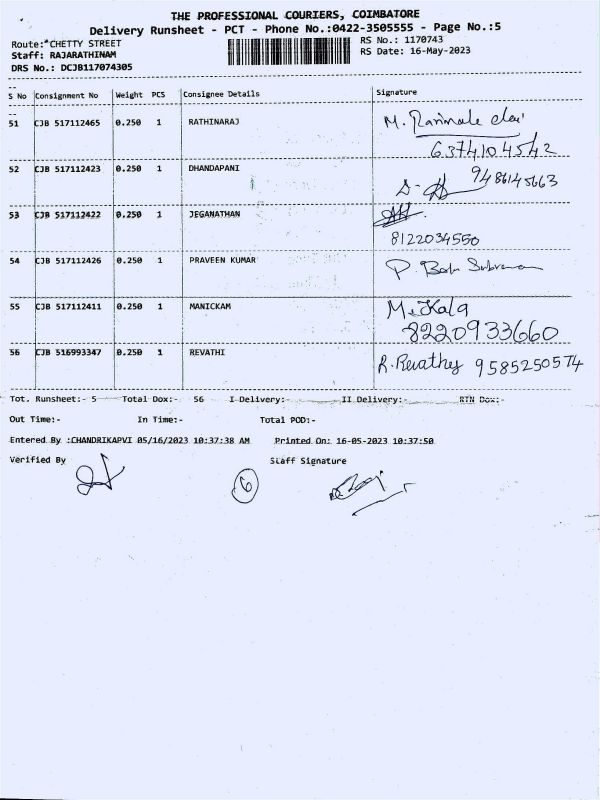 THE PROFESSIONAL COURIERS, COIMBATORE
Delivery Runsheet - PCT - Phone No.:0422-3505555 - Page No.:5
Route:*CHETTY STREET RS No.: 1170743
Staff: RAJARATHINAM RS Date: 16-May-2023
DRS No.: DCJB117074305
S No Consignment No Weight PCS Consignee Details Signature
51 CJB 517112465 0.250 1 RATHINARAJ M.
6374104542
52 CJB 517112423 0.250 1 DHANDAPANI 9486145663
53 CJB 517112422 0.250 1 JEGANATHAN
8122034550
54 CJB 517112426 0.250 1 PRAVEEN KUMAR P. Babu
55 CJB 517112411 0.250 1 MANICKAM M.Kala
8220933660
56 CJB 516993347 0.250 1 REVATHI R.Revathy 9585250574
Tot. Runsheet:- 5 Total Dox:- 56 I Delivery:- II Delivery:- RTN Dox:-
Out Time:- In Time:- Total POD:-
Entered By :CHANDRIKAPVI 05/16/2023 10:37:38 AM Printed On: 16-05-2023 10:37:50
Verified By Staff Signature
6